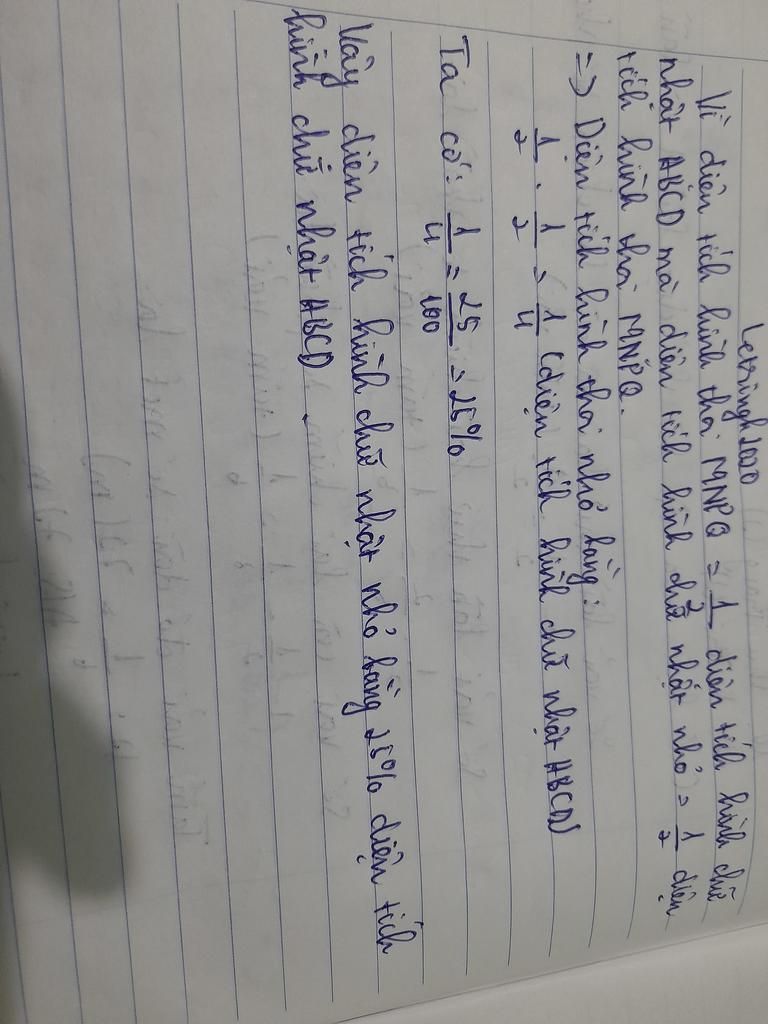 Letringh2020
Vì diện tích hình thoi MNPQ = 1/2 diện tích hình chữ
nhật ABCD mà diện tích hình chữ nhật nhỏ = 1/2 diện
tích hình thoi MNPQ.
=> Diện tích hình thoi nhỏ bằng:
1/2 . 1/2 = 1/4 (diện tích hình chữ nhật ABCD)
Ta có: 1/4 = 25/100 = 25%
Vậy diện tích hình chữ nhật nhỏ bằng 25% diện tích
hình chữ nhật ABCD.